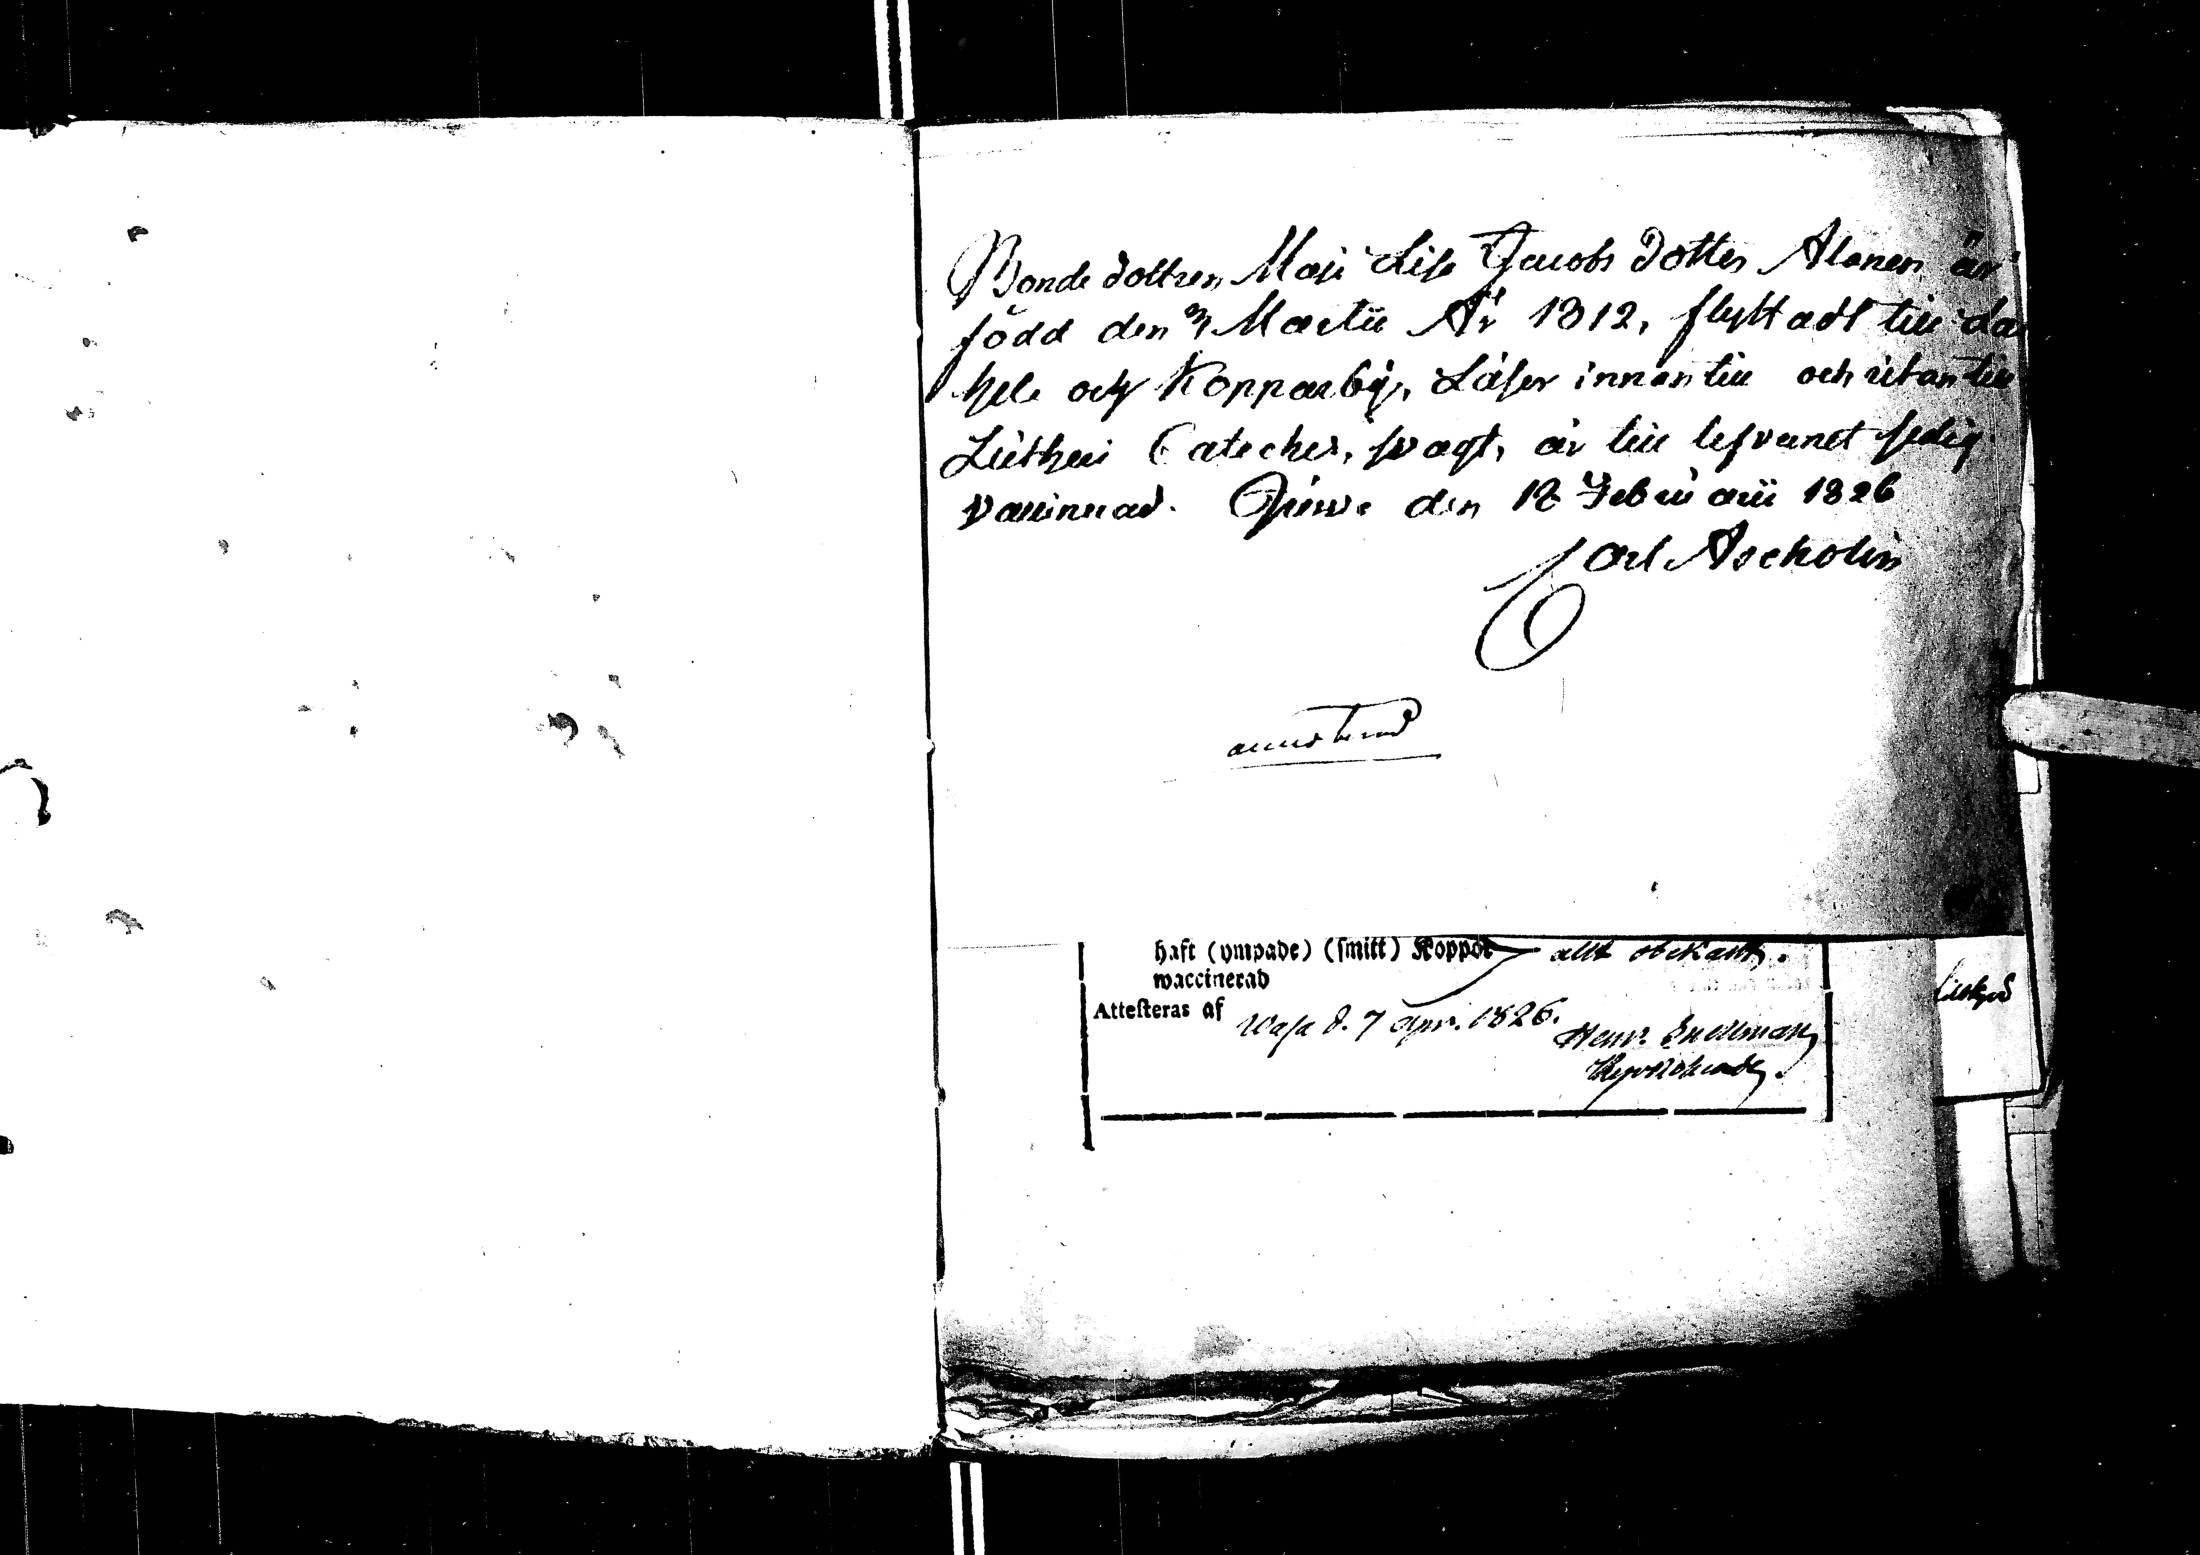 Bonde dottren Maji Lisa Jacobs dotter Alanen är
född den 3 Martii År 1812, flyttadt till La
hela och Kopparby, Läser innantill och utantill
Lutheri Cateches, svagt, är till lefvernet sedig
vaccinerad. den 18 Februarii 1826
Carl Ascholin
annoterad
haft (ympade) (smitt) Koppor allt obekant.
waccinerad
Attesteras af Wasa d. 7 Apr. 1826.
Henr. Snellman